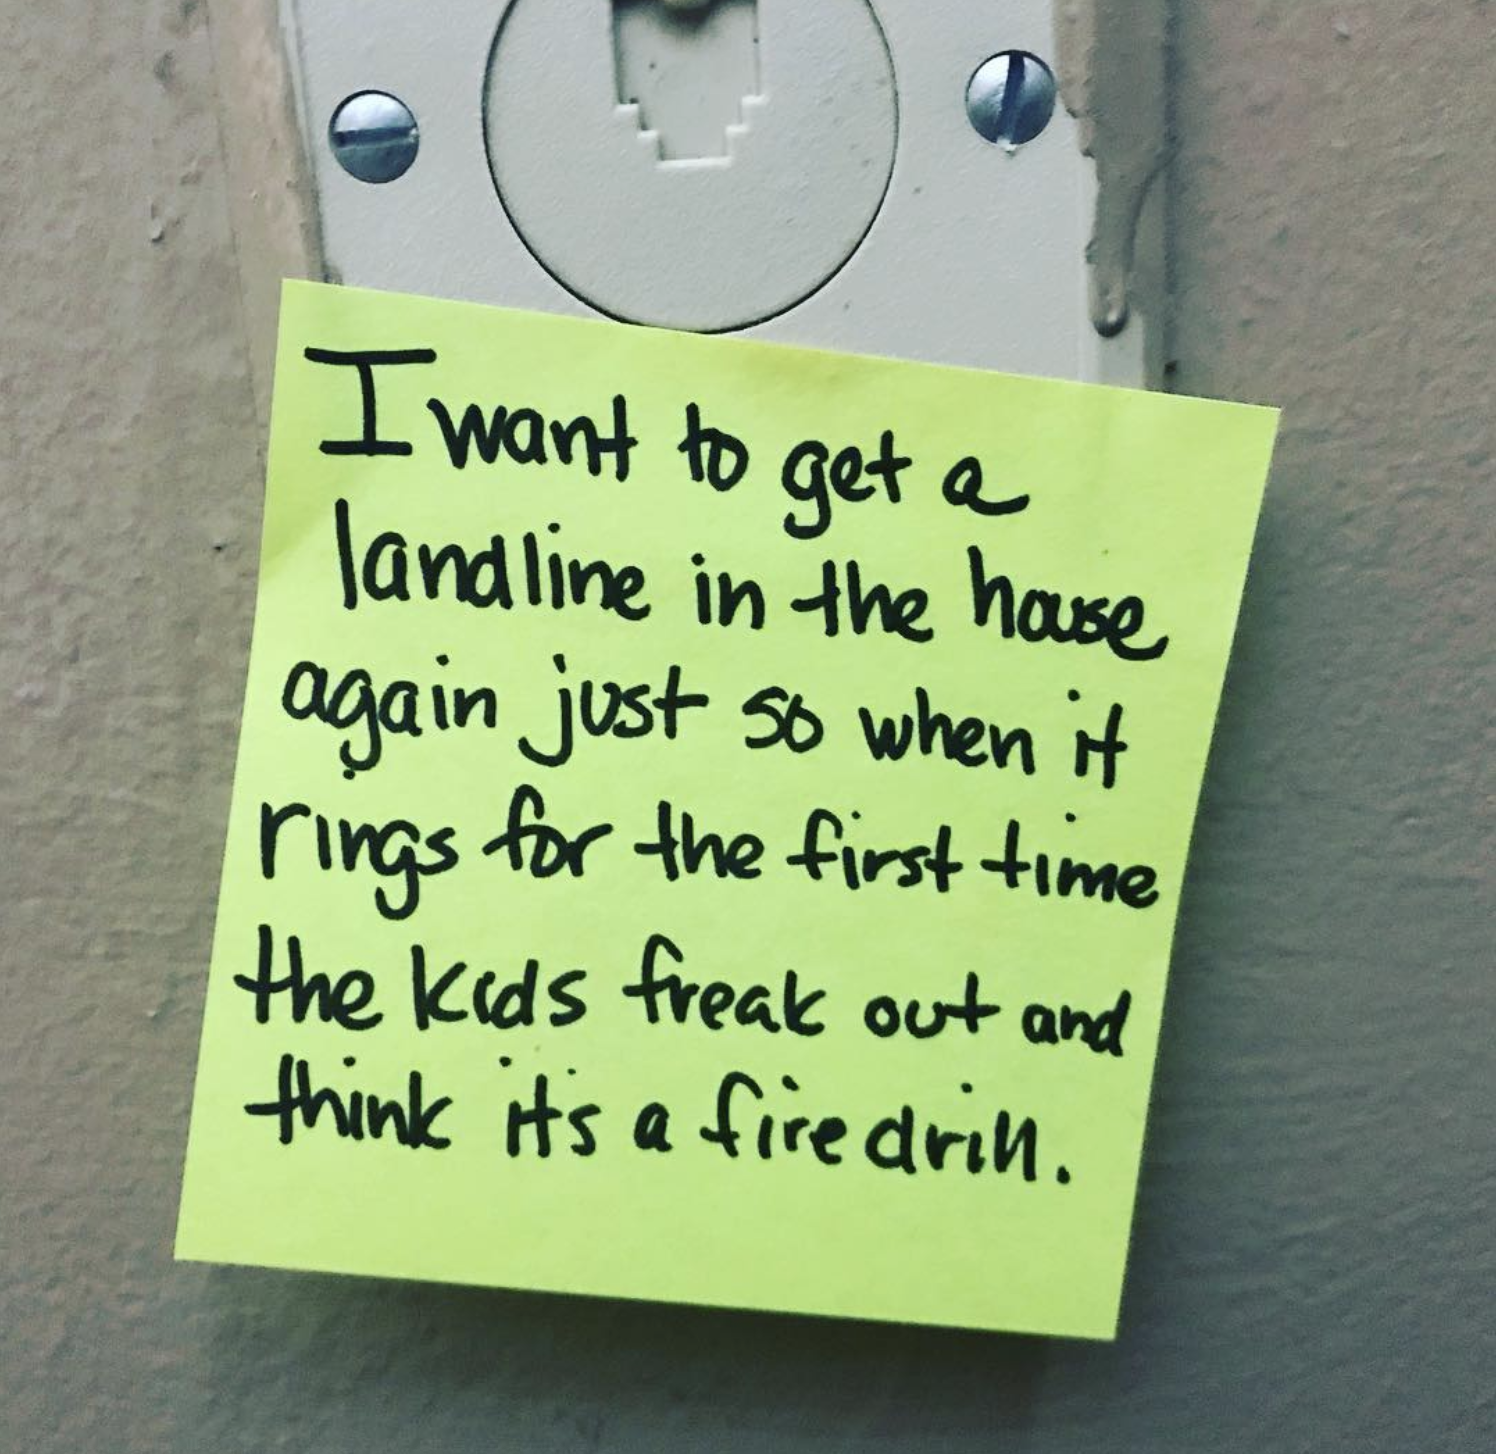 I want to get a
landline in the house
again just so when it
rings for the first time
the kids freak out and
think it's a fire drill.